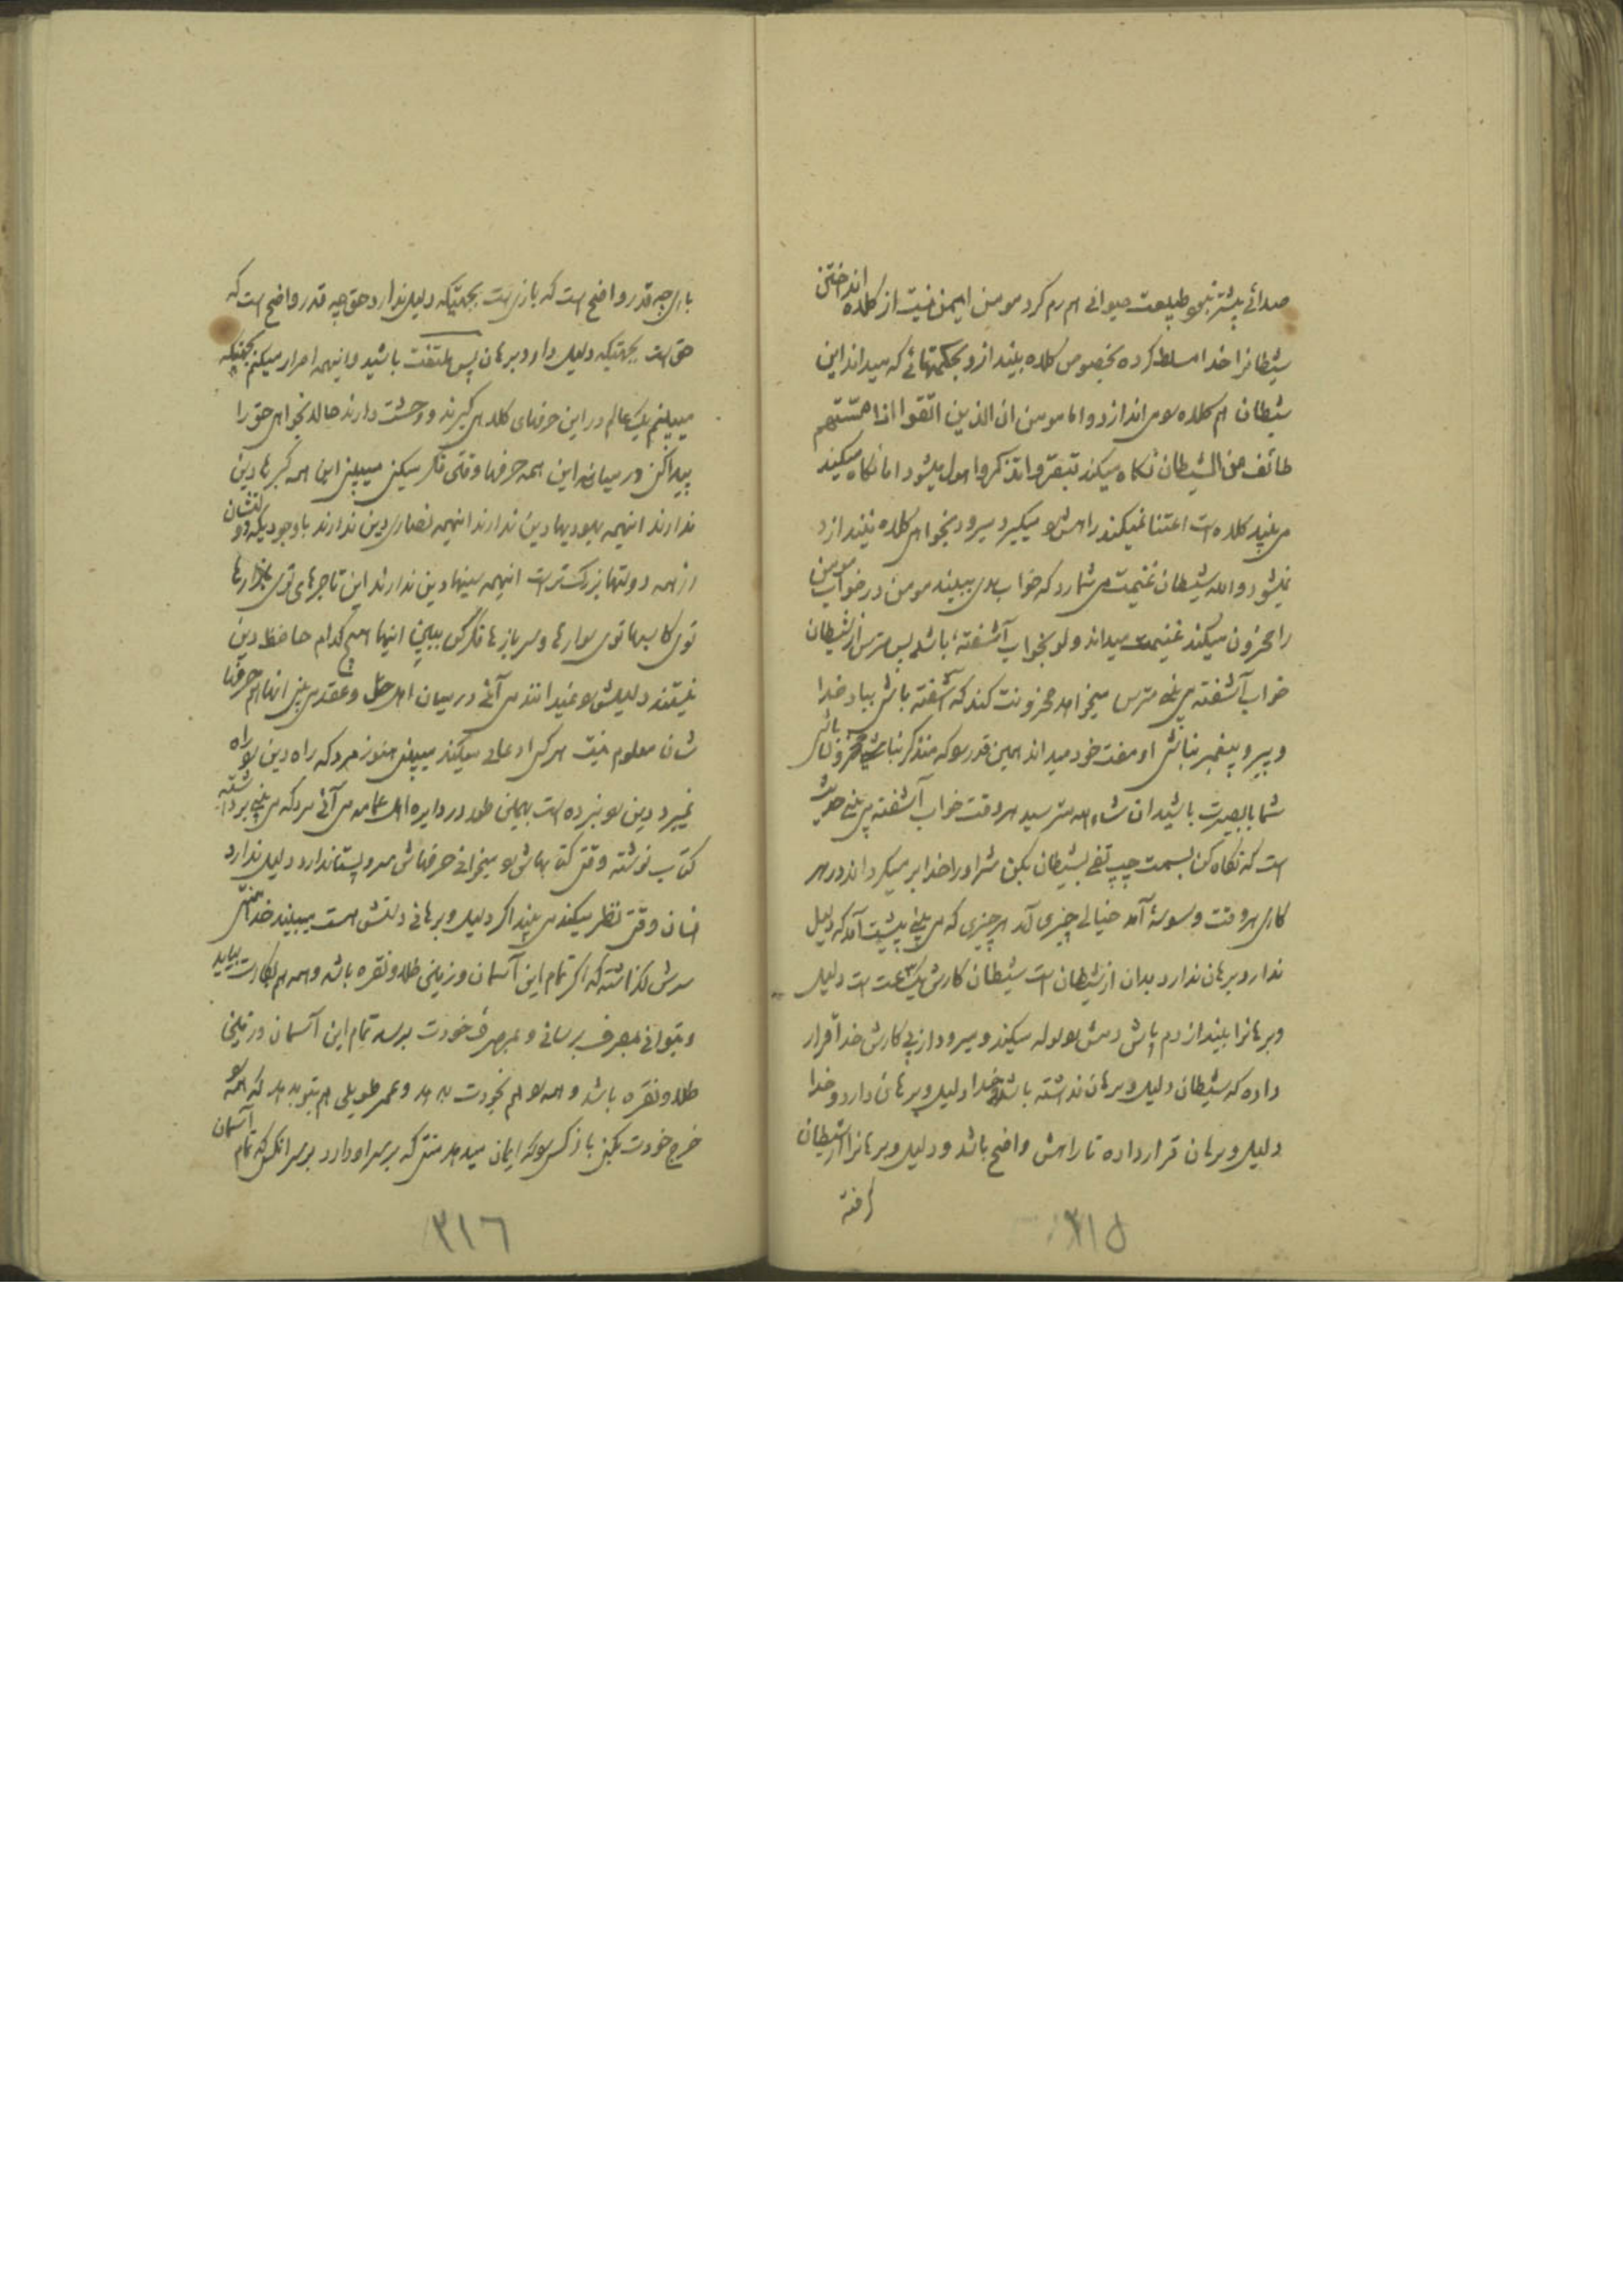 صدائی پیشتر تو طبیعت حیوانی هم رم کرد مومن ایمن نیست از کلاه انداختن
شیطانرا خدا مسلط کرده بخصوص کلاه بیندازد بحکمتهائی که میداند این
شیطان هم کلاه سر می اندازد و اما مومن ان الذین اتقوا اذا مسهم
طائف من الشیطان نگاه میکند تبصروا تذکروا اول میشود اما نگاه میکند
می بیند کلاه است اعتنا نمیکند راهش را میگیرد میرود بخواهی کلاه بیندازد
نمیشود والله شیطان غنیمت می شمارد که خواب بدی ببیند مومن در خواب مومن
را محزون میکند غنیمت میداند ولو بخواب آشفته باشد پس مترس از شیطان
خواب آشفته می بینی مترس میخواهد محزونت کند که آشفته باشی بیاد خدا
و پیر و پیغمبر نباشی او مفت خود میداند همین قدر را که متذکر نباشی محزون باشی
شما بابصیرت باشید ان شاء الله مترسید هر وقت خواب آشفته می بینی
است که نگاه کن بسمت چپ تفی بشیطان بکن شر او را خدا بر میگرداند در هر
کاری هر وقت وسوسهٔ آمد خیالی چیزی آمد هر چیزی که می بینی پیشت آمد که دلیل
ندارد برهان ندارد بدان از شیطان است شیطان کارش یک ساعت است دلیل
و برهانرا بینداز دم پاش دمش را لوله میکند و میرود از پی کارش خدا قرار
داده که شیطان دلیل و برهان نداشته باشد خدا دلیل و برهان دارد و خدا
دلیل و برهان قرار داده تا راهش واضح باشد و دلیل و برهانرا از شیطان
گرفته
۳۱۵
بازی چه قدر واضح است که بازی است بجهتیکه دلیل ندارد حق چه قدر واضح است که
حق است بجهتیکه دلیل دارد برهان پس ملتفت باشید و اینهمه اصرار میکنم بجهتیکه
میبینم یک عالم در این حرفهای کلاه می گیرند و وحشت دارند حالا بخواهی حق را
پیدا کنی در میان این همه حرفها وقتی فکر میکنی میبینی این همه گبرها دین
ندارند اینهمه یهودیها دین ندارند اینهمه نصاری دین ندارند باوجودیکه دولتشان
از همه دولتها بزرگ تر است اینهمه سنیها دین ندارند این تاجرهای توی بازارها
توی کاسبها توی سوارها و سربازها فکر کن ببین اینها هیچ کدام حافظ دین
نیستند دلیلش را نمیدانند می آئی در میان اهل حل و عقد می بینی انها هم حرفها
شان معلوم نیست هر کس ادعائی میکند میبینی هنوز مرد که راه دین راه
نمیبرد دین را نبرده است بهمین طور در دایره اهل عمامه می آئی مردکه می بینی برداشته
کتاب نوشته وقتی کتابهاش را میخوانی حرفهاش سر و پستا ندارد دلیل ندارد
انسان وقتی نظر میکند می بیند اگر دلیل و برهانی دستش هست میبیند خدا منتی
سرش گذاشته که اگر تمام این آسمان و زمین طلا و نقره باشد و همه هم بکارت بیاید
و بتوانی بمصرف برسانی و بمصرف خودت برسد تمام این آسمان و زمین
طلا و نقره باشد و همه را هم بخودت بدهد و عمر طویلی هم بتو بدهد که همه را
خرج خودت بکنی باز کسی را که ایمان میدهد منتی که بر سر او دارد بر سر انکس که تمام آسمان
۳۱۶